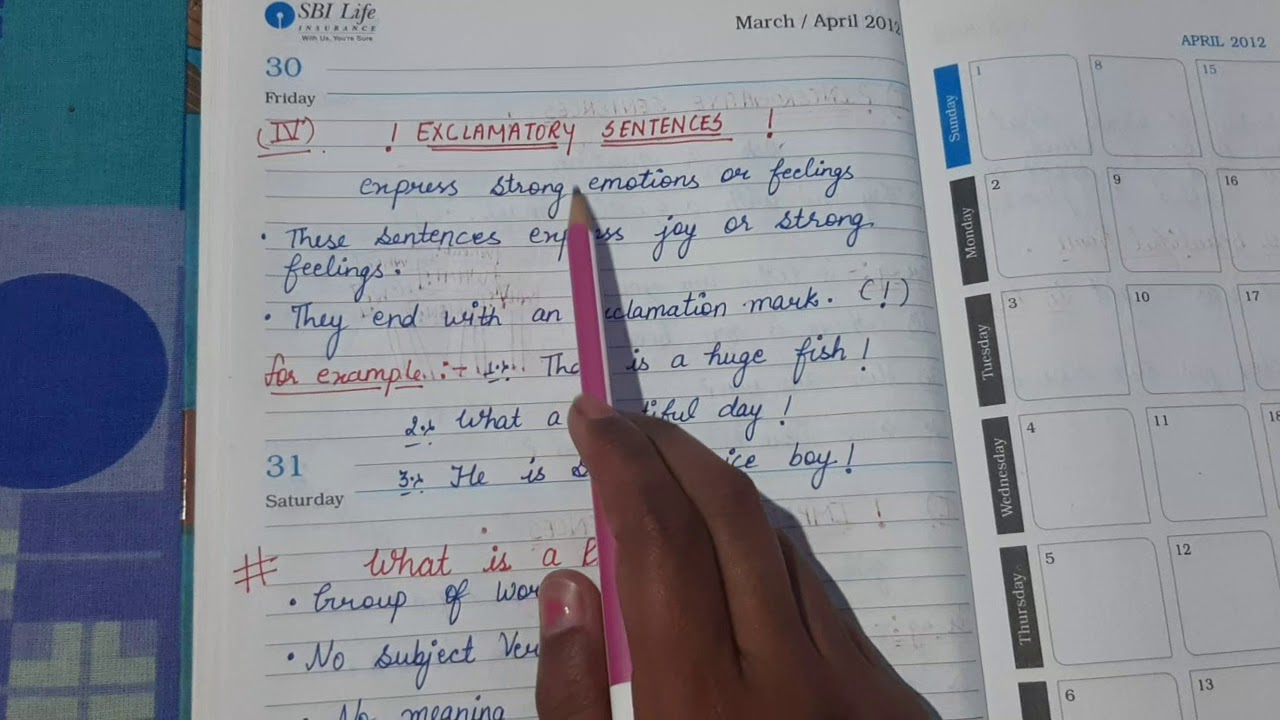 SBI Life
INSURANCE
With Us, You're Sure
March / April 2012
30
Friday
(IV) ! EXCLAMATORY SENTENCES !
express strong emotions or feelings
• These sentences express joy or strong
feelings.
• They end with an exclamation mark. (!)
for example :- 1. That is a huge fish!
2. What a beautiful day!
31
Saturday
3. He is boy!
# What is a
• Group of
• No subject
No meaning
APRIL 2012
Sunday 1 8 15
Monday 2 9 16
Tuesday 3 10 17
Wednesday 4 11
Thursday 5 12
6 13